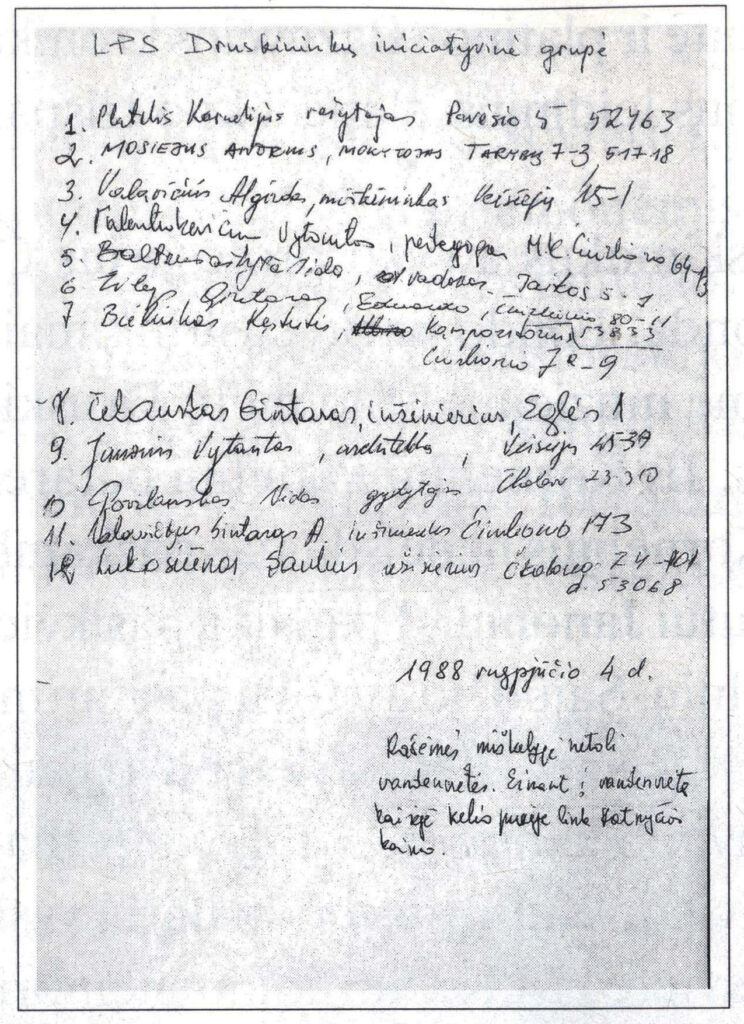 LPS Druskininkų iniciatyvinė grupė
1. Platelis Kornelijus rašytojas Pavėsio 5 52463
2. MOSIEJUS ANDRIUS, MOKYTOJAS TARYBŲ 7-3, 517-18
3. Valavičius Algirdas, miškininkas Veisiejų 15-1
4. Vytautas, pedagogas M.K. Čiurlionio 64-
5. Vida, vadovas. Taikos 5-1
6 Gintaras, Čiurlionio 80-11
7 Kęstutis, kompozitorius 53833
Čiurlionio 72-9
8. Čekauskas Gintaras, inžinierius, Eglės 1
9. Vytautas, architektas, Veisiejų
10 Povilanskas Vidas gydytojas 23-30
11. Valavičius Gintaras A. inžinierius Čiurlionio 173
12 Lukošiūnas Saulius inžinierius 24-101
d. 53068
1988 rugpjūčio 4 d.
Rašėmės miškelyje netoli
vandenvietės. Einant į vandenvietę
kairėje kelio pusėje link Ratnyčios
kaimo.